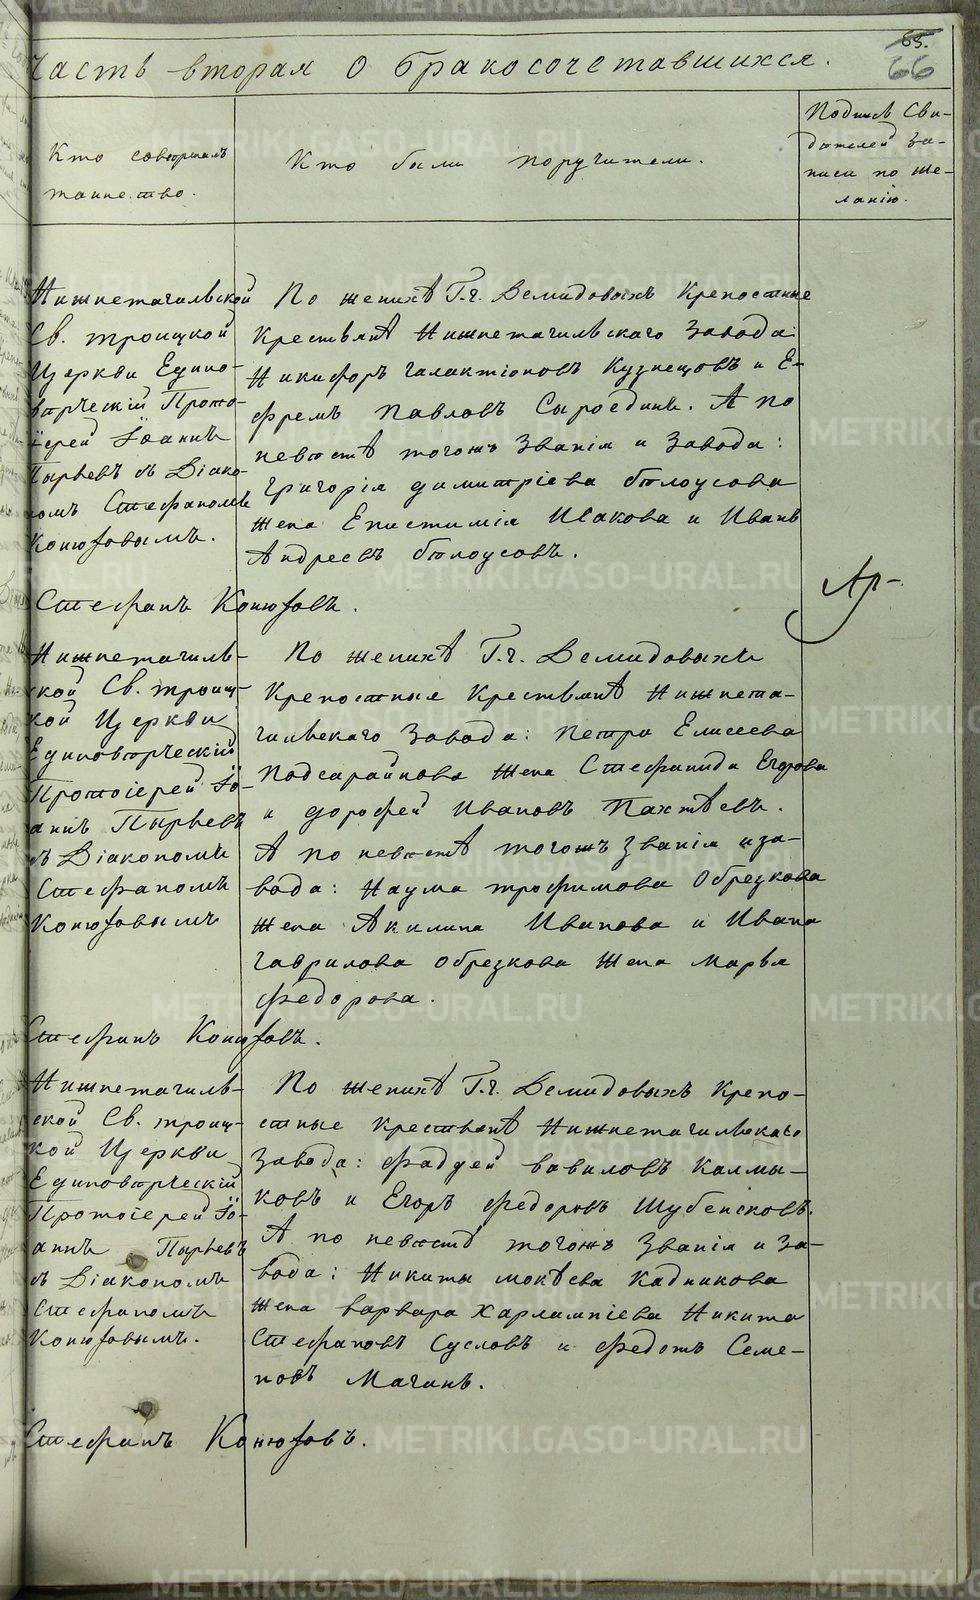 65.
66
Часть вторая о бракосочетавшихся.
Кто совершалъ
таинство.
Кто были поручители.
Подпись Сви-
дѣтелей за-
писи по же-
ланію.
Нижнетагильской
Св. троицкой
Церкви Едино-
вѣрческій Прото-
іерей Іоаннъ
Пырьевъ съ Діако-
номъ Стефаномъ
Конюховымъ.
По женихѣ Г.г. Демидовыхъ Крепостные
Крестьянѣ Нижнетагильскаго Завода:
Никифоръ галактіоновъ Кузнецовъ и Е-
фремъ Павловъ Сыроединъ. А по
невѣстѣ тогожъ Званія и Завода:
Григорія димитріева бѣлоусова
Жена Епистимія Исакова и Иванъ
Андреевъ бѣлоусовъ.
Стефанъ Конюховъ.
Нижнетагиль-
ской Св. троиц-
кой Церкви
Единовѣрческій
Протоіерей Іо-
аннъ Пырьевъ
съ Діакономъ
Стефаномъ
Конюховымъ
По женихѣ Г.г. Демидовыхъ
Крепостные Крестьянѣ Нижнета-
гильскаго Завода: Петра Елисеева
Подсарайнова Жена Стефанида Егорова
и дорофей Ивановъ Пахтѣевъ.
А по невѣстѣ тогожъ Званія и за-
вода: Наума трофимова Обрезкова
Жена Акилина Иванова и Ивана
гаврилова обрезкова Жена Марья
федорова.
Стефанъ Конюховъ.
Нижнетагиль-
ской Св. троиц-
кой Церкви
Единовѣрческій
Протоіерей Іо-
аннъ Пырьевъ
съ Діакономъ
Стефаномъ
Конюховымъ.
По женихѣ Г.г. Демидовыхъ Крепо-
стные крестьянѣ Нижнетагильскаго
Завода: фаддей вавиловъ Калмы-
ковъ и Егоръ федоровъ Шубенковъ.
А по невѣстѣ тогожъ Званія и За-
вода: Никиты мокѣева Кадникова
Жена варвара Харлампіева Никита
Стефановъ Сусловъ и федотъ Семе-
новъ Магинъ.
Стефанъ Конюховъ.
METRIKI.GASO-URAL.RU